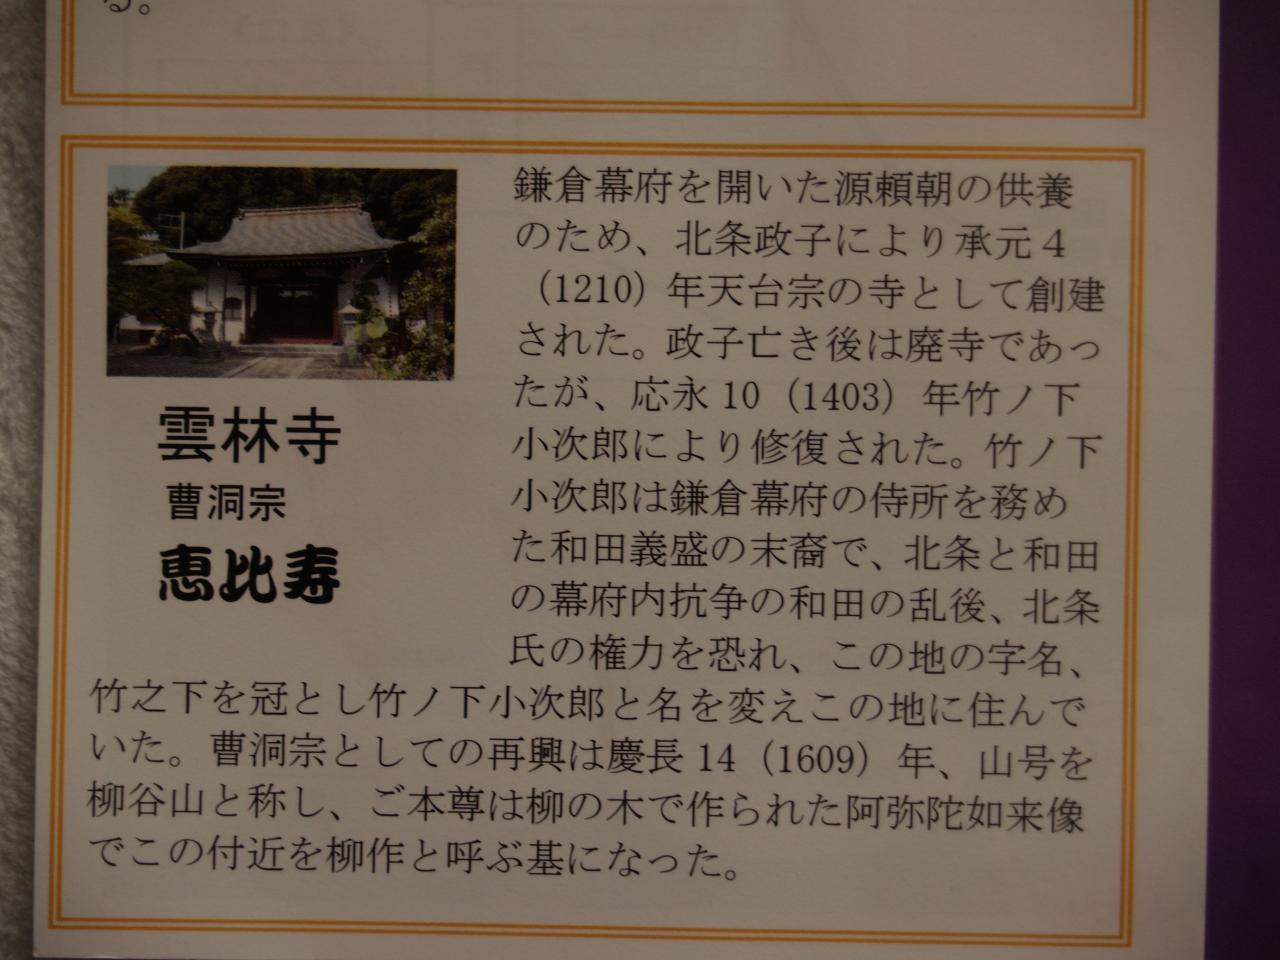 る。
雲林寺
曹洞宗
恵比寿
鎌倉幕府を開いた源頼朝の供養
のため、北条政子により承元４
（1210）年天台宗の寺として創建
された。政子亡き後は廃寺であっ
たが、応永 10（1403）年竹ノ下
小次郎により修復された。竹ノ下
小次郎は鎌倉幕府の侍所を務め
た和田義盛の末裔で、北条と和田
の幕府内抗争の和田の乱後、北条
氏の権力を恐れ、この地の字名、
竹之下を冠とし竹ノ下小次郎と名を変えこの地に住んで
いた。曹洞宗としての再興は慶長 14（1609）年、山号を
柳谷山と称し、ご本尊は柳の木で作られた阿弥陀如来像
でこの付近を柳作と呼ぶ基になった。